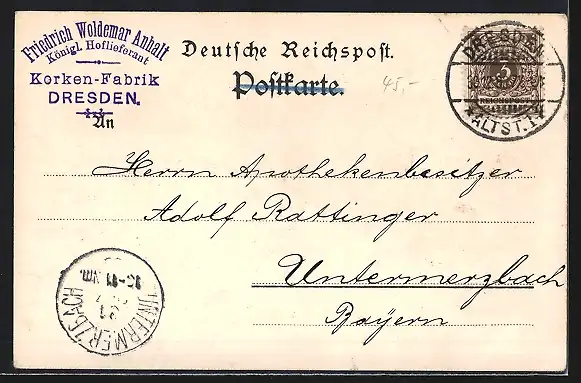 Friedrich Woldemar Anhalt
Königl. Hoflieferant
Korken-Fabrik
DRESDEN.
Deutsche Reichspost.
Postkarte.
45,-
An
DRESDEN
ALTST. 1
3
REICHSPOST
Herrn Apothekenbesitzer
Adolf Rattinger
Untermerzbach
Bayern
UNTERMERZBACH
31
10-11 Vm.